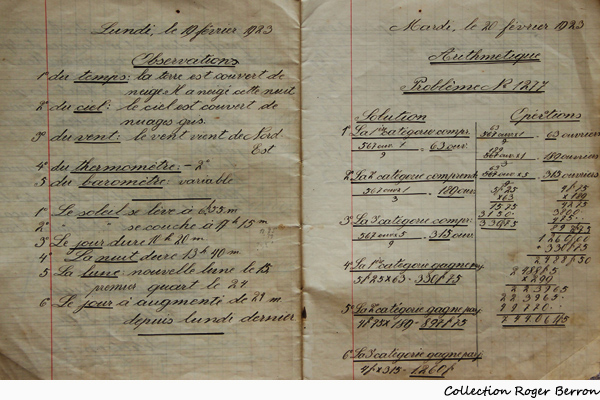 Lundi, le 19 février 1923
Observations
1° du temps: la terre est couvert de
neige Il a neigé cette nuit
2° du ciel: le ciel est couvert de
nuages gris.
3° du vent: le vent vient du Nord
Est
4° du thermomètre: - 2°
5 du baromètre: variable
1° Le soleil se lève à 6 55 m
2° se couche à 17 h 15 m
3° Le jour dure 10 h 20 m
4° La nuit dure 13 h 40 m
5 La lune: nouvelle lune le 15
premier quart le 24
6° Le jour a augmenté de 21 m
depuis lundi dernier
Mardi, le 20 février 1923
Arithmétique
Problème N° 1277
Solution
Opérations
1° La 1re catégorie compr.
567 ouv. 1 = 63 ouv.
9
2° La 2e catégorie comprend
567 ouv. 1 = 189 ouv.
3
3° La 3e catégorie compr.
567 ouv. 5 = 315 ouv.
9
4° La 1re catégorie gagne
5f 25 x 63 = 330f 75
5° La 2e catégorie gagne
4f 75 x 189 = 897f 75
6° La 3e catégorie gagne
4f x 315 = 1260f
567 ouv. 1 = 63 ouvriers
9
567 ouv. 1 = 189 ouvriers
3
567 ouv. x 5 = 315 ouvriers
9
5f 25
x 63
1575
3150
330f 75
4f 75
x 189
4275
Collection Roger Berron